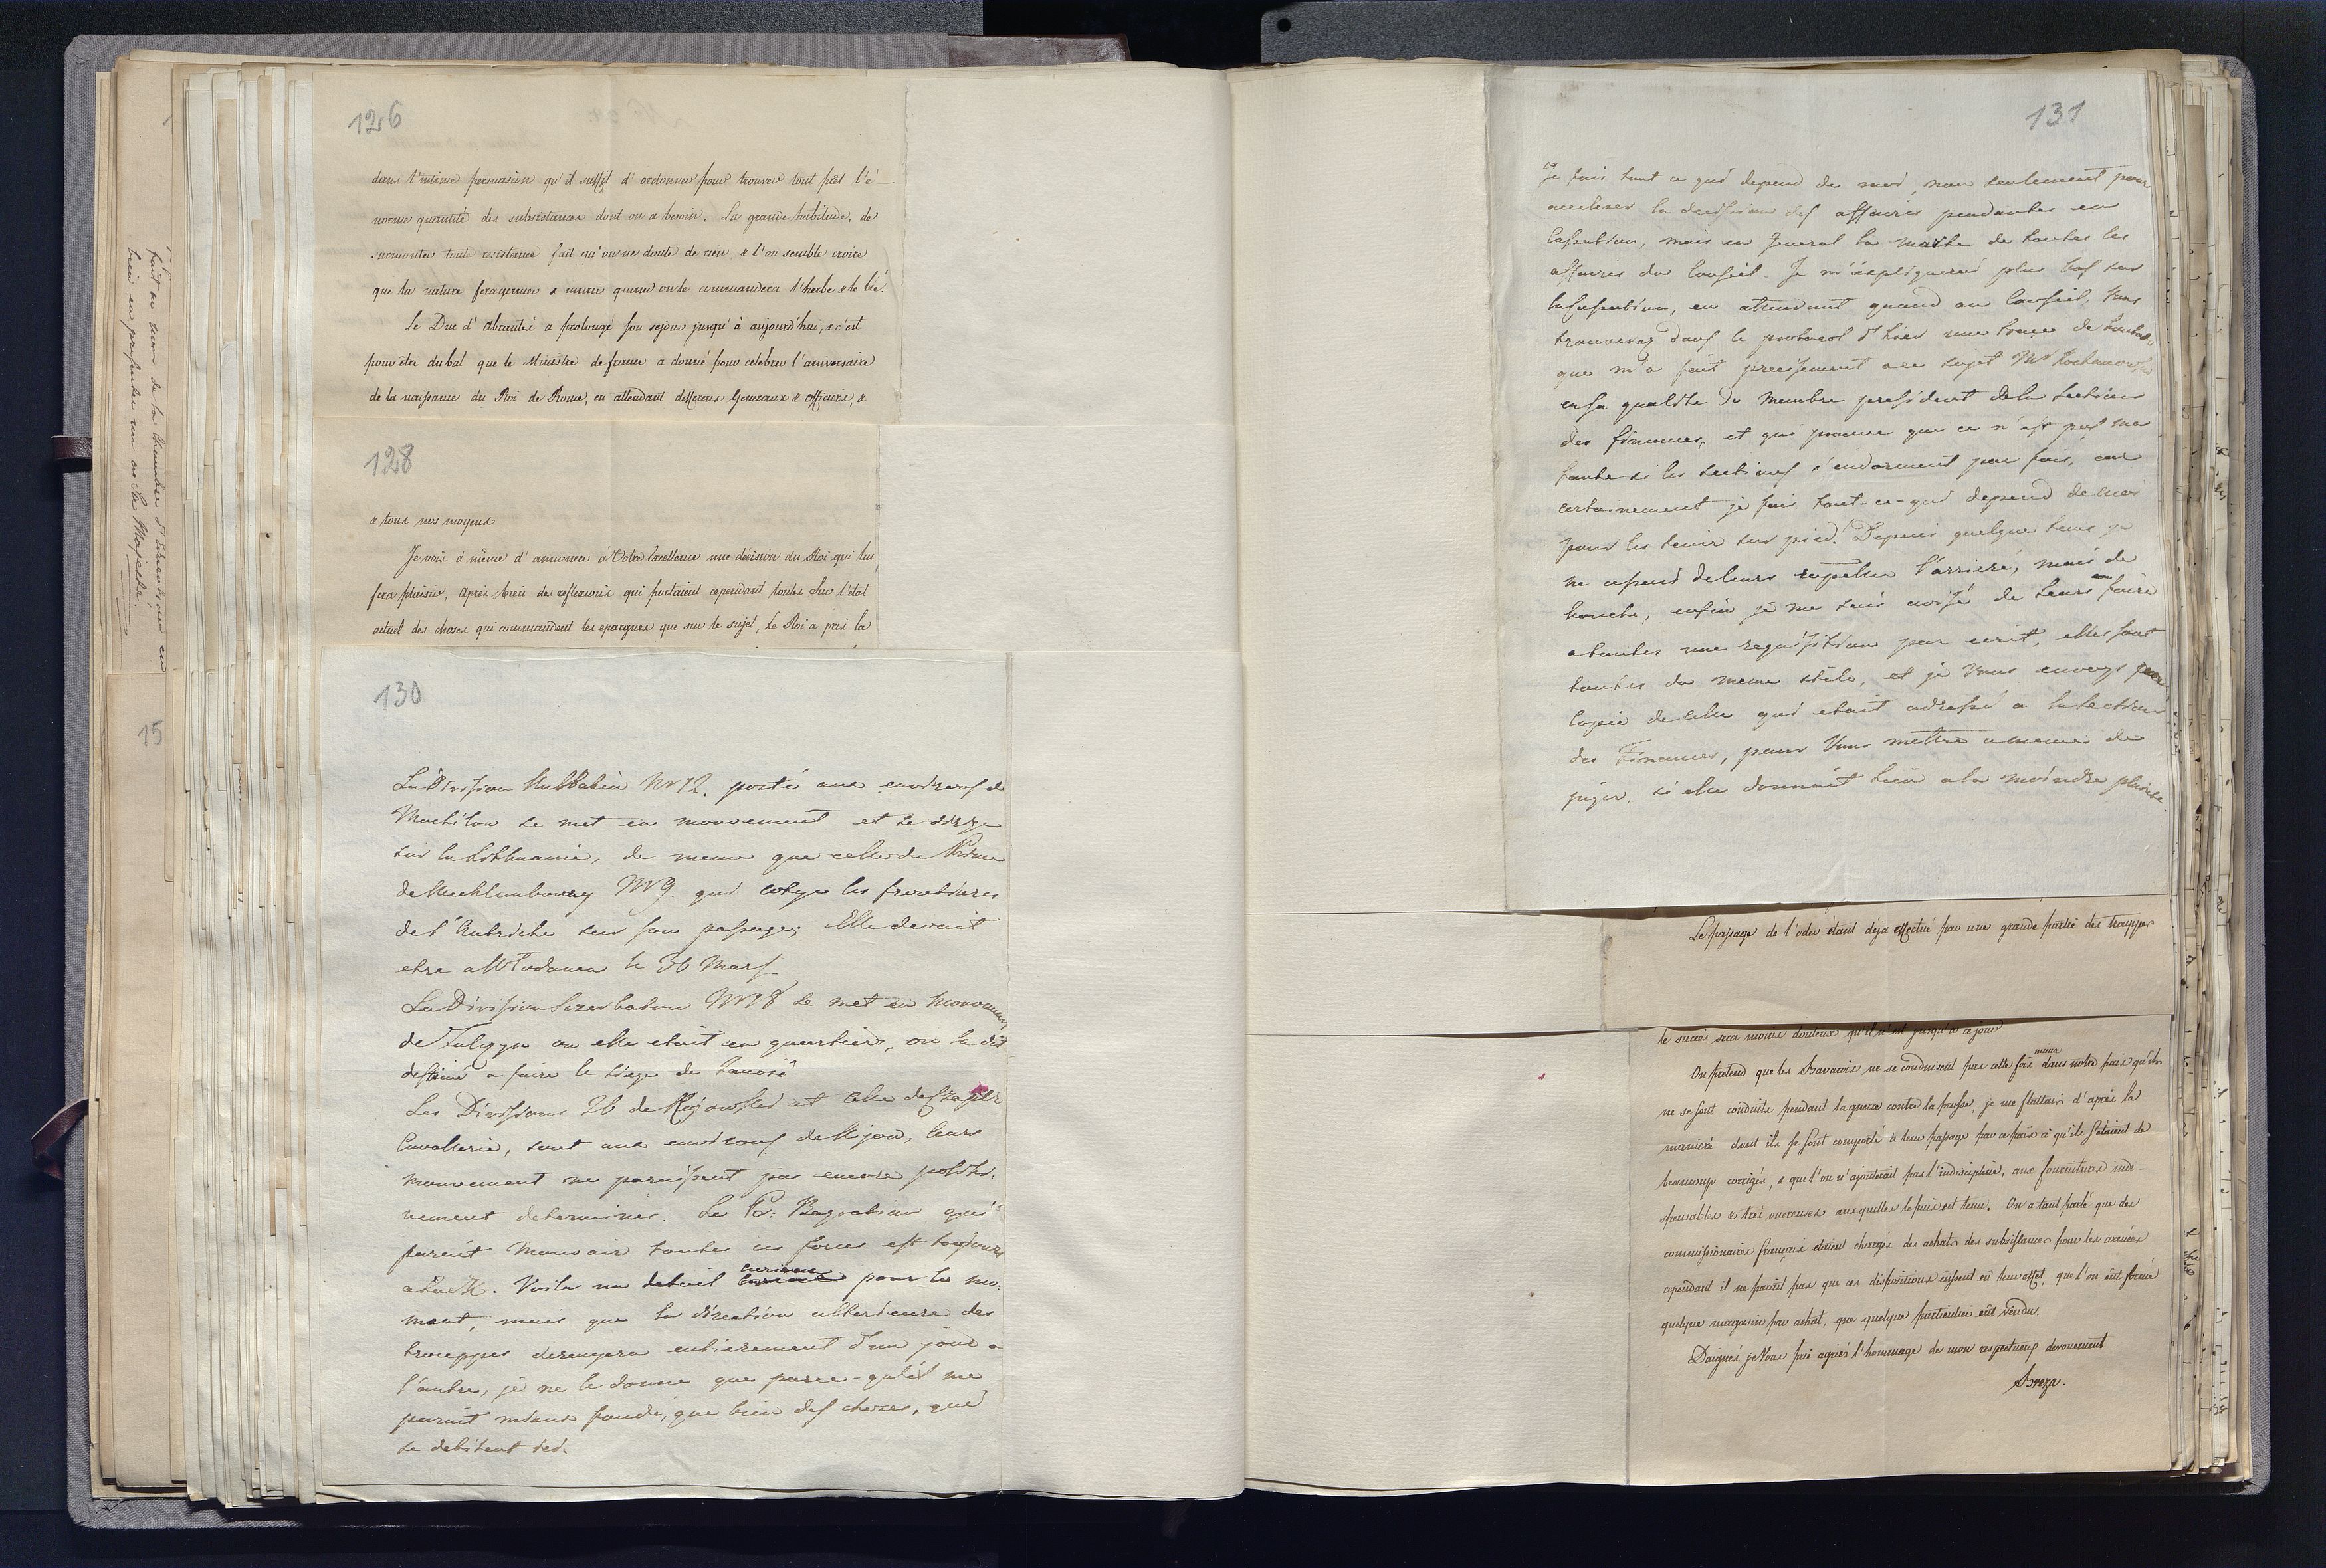 fait au nom de la Chambre d'Education en
bien en presenter un à Sa Majesté.
15
126
dans l'intime persuasion qu'il suffit d'ordonner pour trouver tout prêt l'é-
norme quantité des subsistances dont on a besoin. La grande habitude, de
surmonter toute resistance fait qu'on ne doute de rien, & l'on semble croire
que la nature fera germer & murir quand on le commandera l'herbe & le blé.
le Duc d'Abrantés a prolongé son sejour jusqu'à aujourd'hui, & c'est
pour être du bal que le Ministre de france a donné pour celebrer l'aniversaire
de la naissance du Roi de Rome, en attendant differens Generaux & officiers, &
128
& tous nos moyens
Je vais à même d'annoncer à Votre Excellence une décision du Roi qui lui
fera plaisir. Après bien des reflexions qui portaient cependant toutes sur l'état
actuel des choses qui commandent les epargnes que sur le sujet, le Roi a pris la
130
La Division Nr 12. posté aux environs de
Mochilow se met en mouvement et se dirige
sur la Lithuanie, de meme que celle du Prince
de Mecklembourg Nr 9. qui cotoye les frontieres
de l'Autriche sur son passage; Elle devait
etre a le 30 Mars.
La Division Szczerbatow Nr 18 se met en mouvement
de ou elle etait en quartiers, on la dit
destiné a faire le siege de
Les Divisions 26 de et celle de
Cavallerie, sont aux environs de Kijow, leurs
mouvement ne paraissent pas encore positi-
vement determinés. Le Pr: Bagration qui
parait mouvoir toutes ces forces est toujours
a Luck. Voila un detail curieux pour le mo-
ment, mais que la direction ulterieure des
trouppes derangera entierement d'un jour a
l'autre, je ne le donne que parce-qu'il me
parait mieux fondé, que bien des choses, qui
se debitent ici.
131
Je fais tout ce qui depend de moi, non seulement pour
accelerer la decission des affaires pendantes en
Cassation, mais en General la marche de toutes les
affaires du Conseil. Je m'expliquerai plus bas sur
la Cassation, en attendant quand au Conseil, Vous
trouverez dans le protocol d'hier une trace de
que m'a fait precisement a ce sujet Mr Kochanowski
en sa qualité de Membre president de la Section
des finances, et qui prouve que ce n'est pas ma
faute si les sections s'endorment par fois, car
certainement je fais tout-ce-qui depend de moi
pour les tenir sur pied. Depuis quelque tems je
ne cessais de leurs rapeller l'arrieré, mais de
bouche, enfin je me suis avisé de leurs en faire
a toutes une requisition par ecrit, elles sont
toutes du meme stile, et je Vous envoye pour
Copie de celle qui etait adressé a la Section
des Finances, pour Vous mettre a meme de
juger, si elle donnait lieu a la moindre plainte.
Le passage de l'oder étant déja effectué par une grande partie des trouppes
le succès sera moins douteux qu'il n'est jusqu'à ce jour
On pretend que les Bavarois ne se conduisent pas cette fois mieux dans notre païs qu'ils
ne se sont conduits pendant la guerre contre la prusse, je me flattais d'après la
manière dont ils se sont comporté à leur passage par ce païs ci qu'ils s'étaient de
beaucoup corrigés, & que l'on n'ajouterait pas l'indiscipline, aux fournitures indi-
spensables & très onereuses auxquelles le païs est tenu. On a tant parlé que des
commissionaires français etaient chargés des achats des subsistances pour les armées
cependant il ne parait pas que ces dispositions eussent eû leur effet, que l'on eût formé
quelque magasin par achat, que quelque particulier eût vendu.
Daignés je Vous prie agréer l'hommage de mon respectueux devouement
Breza.